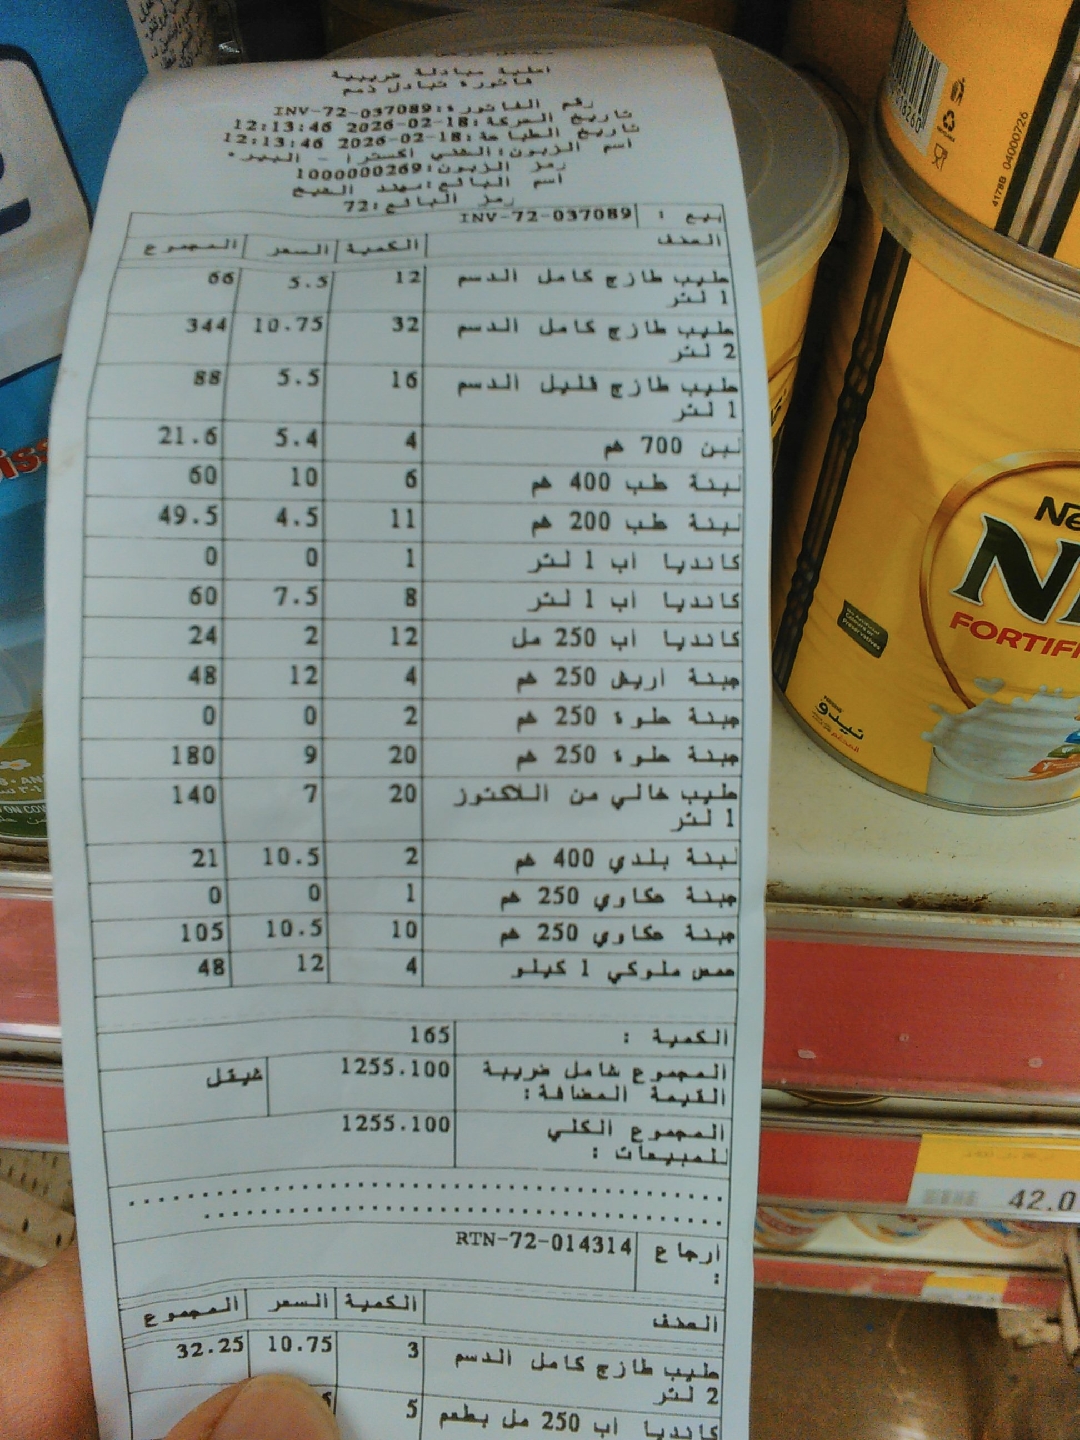 أصلية مبادلة ضريبية
فاتورة تبادل ذمم
رقم الفاتورة: INV-72-037089
تاريخ الحركة: 2026-02-18 12:13:46
تاريخ الطباعة: 2026-02-18 12:13:46
اسم الزبون: الشني اكسترا - البير
رمز الزبون: 1000000269
اسم البائع: مهند الشيخ
رمز البائع: 72
بيع : INV-72-037089
الصنف الكمية السعر المجموع
حليب طازج كامل الدسم 12 5.5 66
1 لتر
حليب طازج كامل الدسم 32 10.75 344
2 لتر
حليب طازج قليل الدسم 16 5.5 88
1 لتر
لبن 700 غم 4 5.4 21.6
لبنة طب 400 غم 6 10 60
لبنة طب 200 غم 11 4.5 49.5
كانديا اب 1 لتر 1 0 0
كانديا اب 1 لتر 8 7.5 60
كانديا اب 250 مل 12 2 24
جبنة اريش 250 غم 4 12 48
جبنة حلوة 250 غم 2 0 0
جبنة حلوة 250 غم 20 9 180
حليب خالي من اللاكتوز 20 7 140
1 لتر
لبنة بلدي 400 غم 2 10.5 21
جبنة عكاوي 250 غم 1 0 0
جبنة عكاوي 250 غم 10 10.5 105
حمص ملوكي 1 كيلو 4 12 48
الكمية : 165
المجموع شامل ضريبة 1255.100 شيقل
القيمة المضافة:
المجموع الكلي 1255.100
للمبيعات :
ارجاع RTN-72-014314
:
الصنف الكمية السعر المجموع
حليب طازج كامل الدسم 3 10.75 32.25
2 لتر
كانديا اب 250 مل بطعم 5
Ne
FORTIF
نيدو
04000726
4178B
42.0